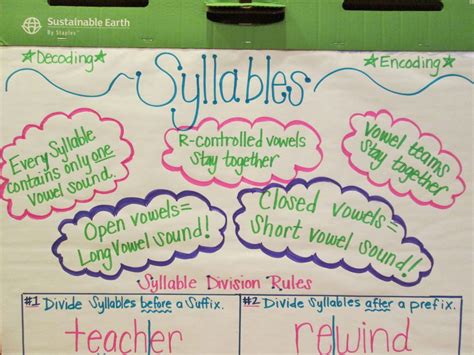 Sustainable Earth
By Staples
☆Decoding☆
Syllables
☆Encoding☆
Every Syllable
contains only one
vowel sound.
R-controlled vowels
stay together
Vowel teams
stay together
Open vowels=
Long vowel sound!
Closed vowels=
Short vowel sound!
Syllable Division Rules
#1 Divide Syllables before a Suffix.
#2 Divide Syllables after a prefix.
teacher
rewind